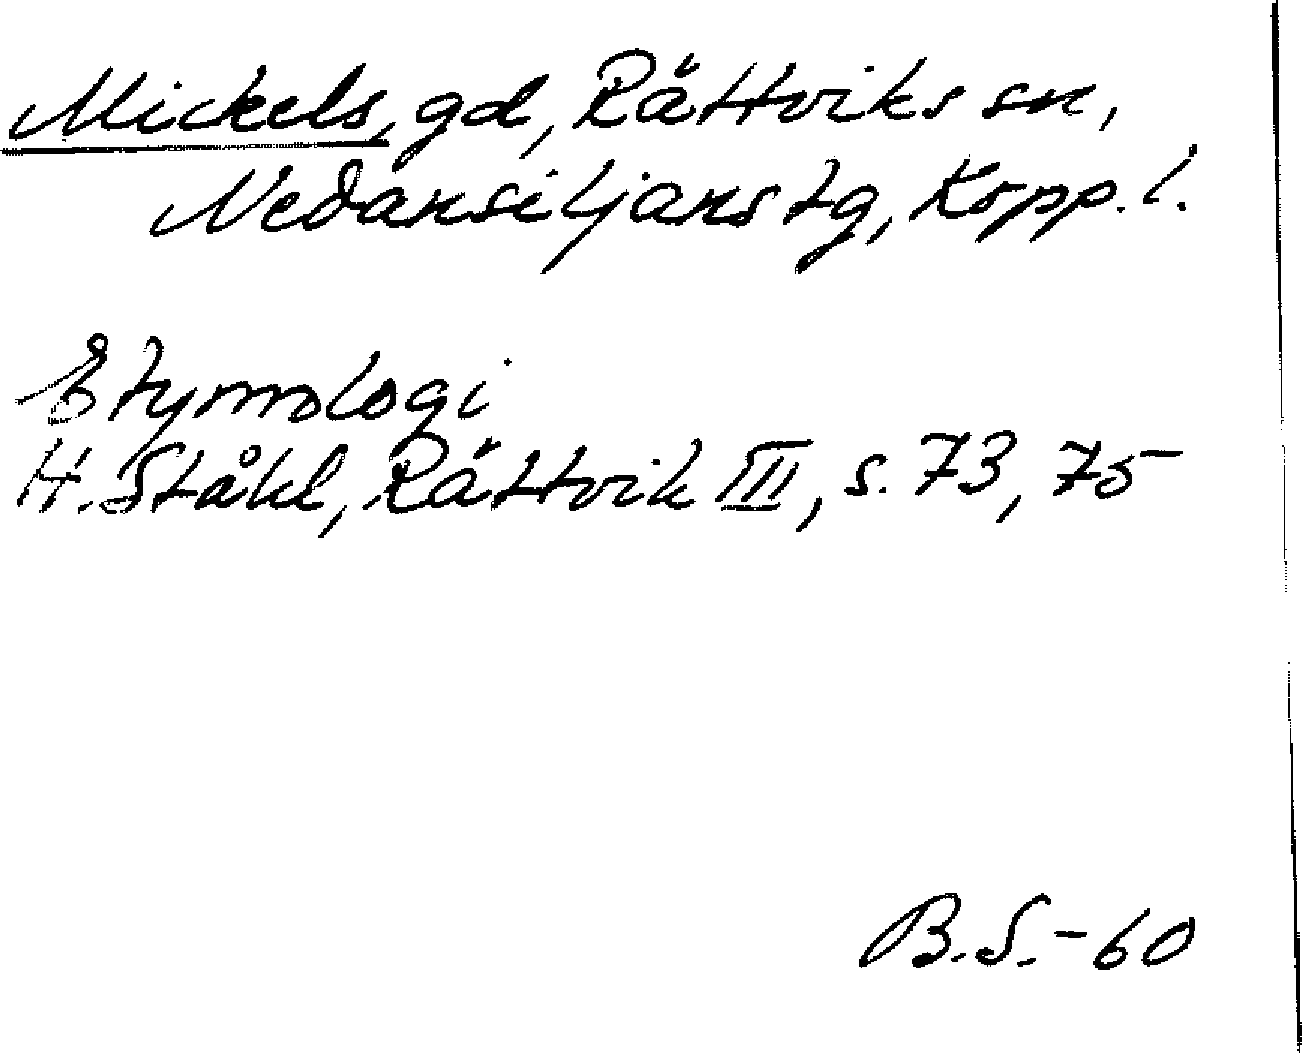 Mickels, gd, Rättviks sn,
Nedansiljans tg, Kopp. l.
Etymologi
H. Ståhl, Rättvik III, s. 73, 75
B.S.-60